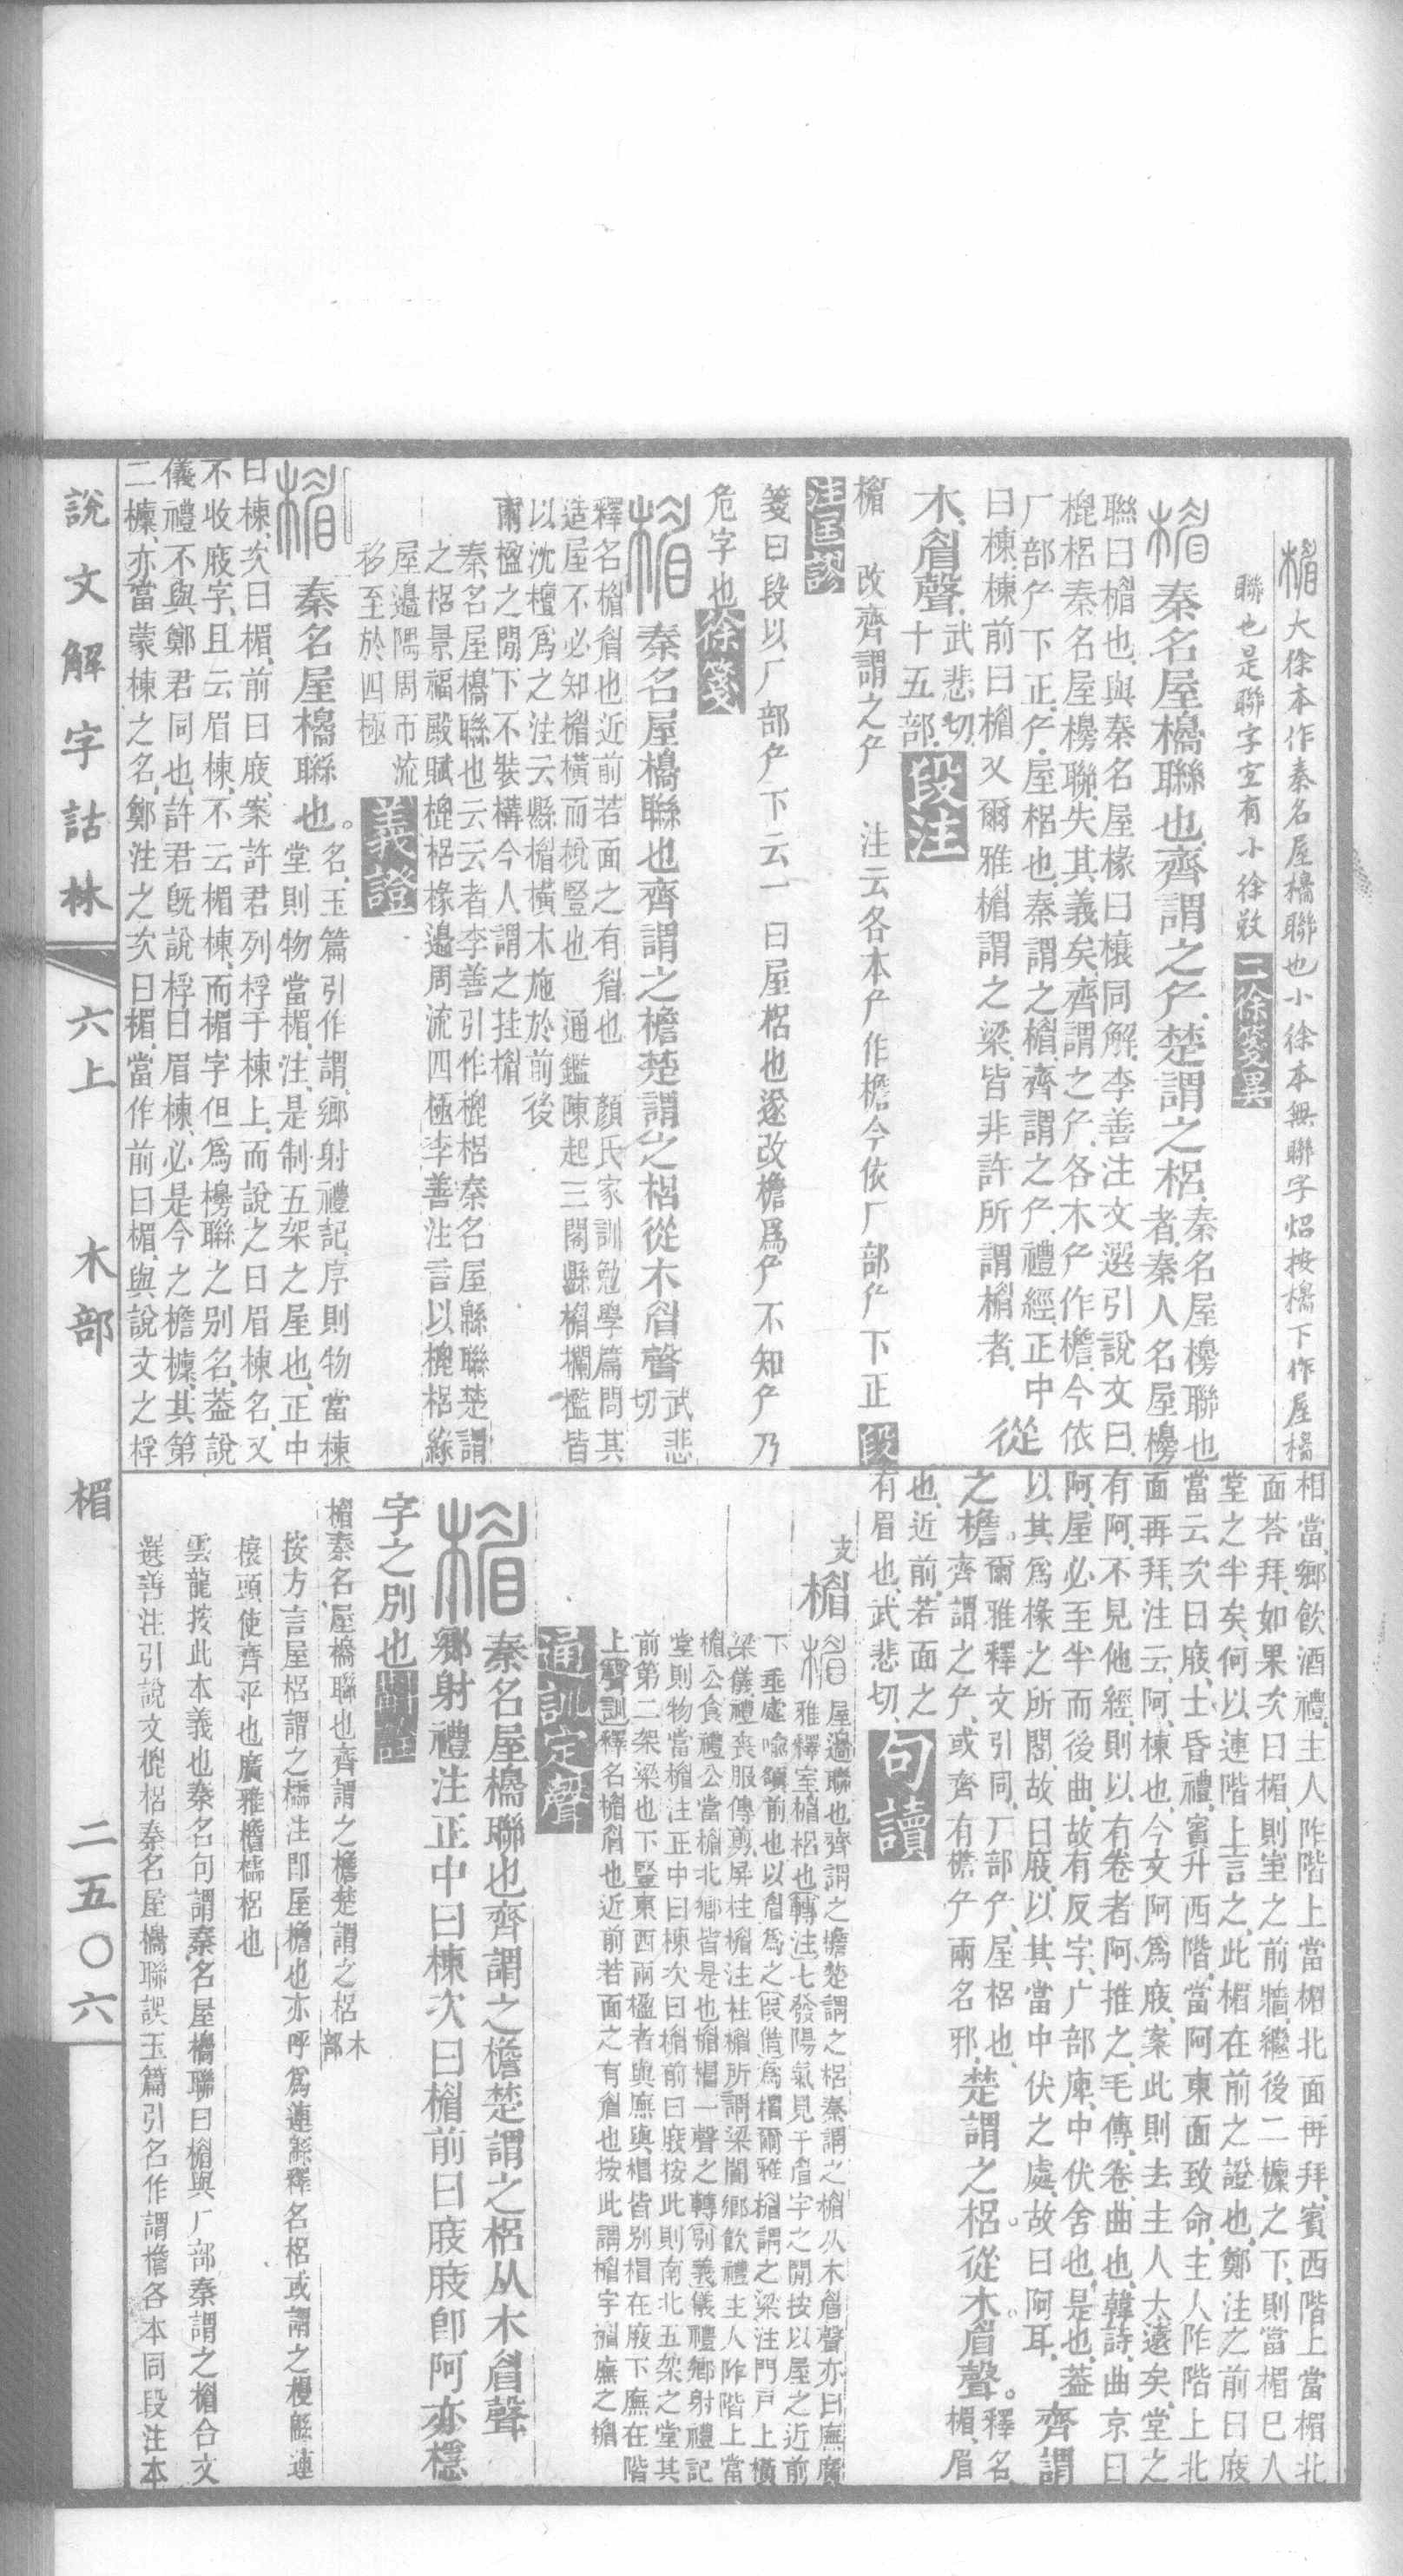 楣大徐本作秦名屋櫋聯也小徐本無聯字炤按櫋下作屋櫋
聯也是聯字宜有小徐敚
二徐箋異
楣秦名屋櫋聯也齊謂之厃楚謂之梠
秦名屋櫋聯也者秦人名屋櫋
聯曰楣也與秦名屋椽曰榱同解李善注文選引說文曰
梍梠秦名屋櫋聯失其義矣齊謂之厃各木厃作檐今依
厂部厃下正厃屋梠也秦謂之楣齊謂之厃禮經正中
曰棟棟前曰楣又爾雅楣謂之梁皆非許所謂楣者
從
木眉聲
武悲切
十五部
段注
楣 改齊謂之厃 注云各本厃作檐今依厂部厃下正
段
注匡謬
箋曰段以厂部厃下云一曰屋梠也遂改檐爲厃不知厃乃
危字也
徐箋
楣秦名屋櫋聯也齊謂之檐楚謂之梠從木眉聲
武悲
切
釋名楣眉也近前若面之有眉也 顏氏家訓勉學篇問其
造屋不必知楣橫而梲豎也 通鑑陳起三閣縣楣欄檻皆
以沈檀爲之注云縣楣橫木施於前後
兩楹之閒下不裝構今人謂之挂楣
秦名屋櫋聯也云云者李善引作梍梠秦名屋緜聯楚謂
之梠景福殿賦梍梠椽邊周流四極李善注言以梍梠緣
屋邊隅周帀流
移至於四極
義證
楣秦名屋櫋聯也
名玉篇引作謂鄉射禮記序則物當棟
堂則物當楣注是制五架之屋也正中
曰棟次曰楣前曰庪案許君列桴于棟上而說之曰眉棟名又
不收庪字且云眉棟不云楣棟而楣字但爲櫋聯之別名葢說
儀禮不與鄭君同也許君旣說桴曰眉棟必是今之檐檁其第
二檁亦當蒙棟之名鄭注之次曰楣當作前曰楣與說文之桴
相當鄉飲酒禮主人阼階上當楣北面再拜賓西階上當楣北
面荅拜如果次曰楣則室之前牆繼後二檁之下則當楣已入
堂之半矣何以連階上言之此楣在前之證也鄭注之前曰庪
當云次曰庪士昏禮賓升西階當阿東面致命主人阼階上北
面再拜注云阿棟也今文阿爲庪案此則去主人大遠矣堂之
有阿不見他經則以有卷者阿推之毛傳卷曲也韓詩曲京曰
阿屋必至半而後曲故有反宇广部庳中伏舍也是也葢
以其爲椽之所閣故曰庪以其當中伏之處故曰阿耳
齊謂
之檐
爾雅釋文引同厂部厃屋梠也
齊謂之厃或齊有檐厃兩名邪
楚謂之梠從木眉聲
釋名
楣眉
也近前若面之
有眉也武悲切
句讀
楣屋邊聯也齊謂之檐楚謂之梠秦謂之楣从木眉聲亦曰廡廣
雅釋室楣梠也轉注七發陽氣見于眉宇之閒按以屋之近前
下垂處喻額前也以眉爲之叚借爲楣爾雅楣謂之梁注門戶上橫
梁儀禮喪服傳剪屏柱楣注柱楣所謂梁闇鄉飲禮主人阼階上當
楣公食禮公當楣北鄉皆是也楣楣一聲之轉別義儀禮鄉射禮記
堂則物當楣注正中曰棟次曰楣前曰庪按此則南北五架之堂其
前第二架梁也下豎東西兩楹者與廡與楣皆別楣在庪下廡在階
上聲訓釋名楣眉也近前若面之有眉也按此謂楣字楣廡之楣
通訓定聲
楣秦名屋櫋聯也齊謂之檐楚謂之梠从木眉聲
鄉射禮注正中曰棟次曰楣前曰庪庪卽阿亦檼
字之別也
楣秦名屋櫋聯也齊謂之檐楚謂之梠
木
部
按方言屋梠謂之櫺注卽屋檐也亦呼爲連緜釋名梠或謂之櫋緜連
榱頭使齊平也廣雅檐櫺梠也
雲龍按此本義也秦名句謂秦名屋櫋聯曰楣與厂部秦謂之楣合文
選善注引說文梍梠秦名屋櫋聯誤玉篇引名作謂檐各本同段注本
說文解字詁林
六上
木部
楣
二五〇六